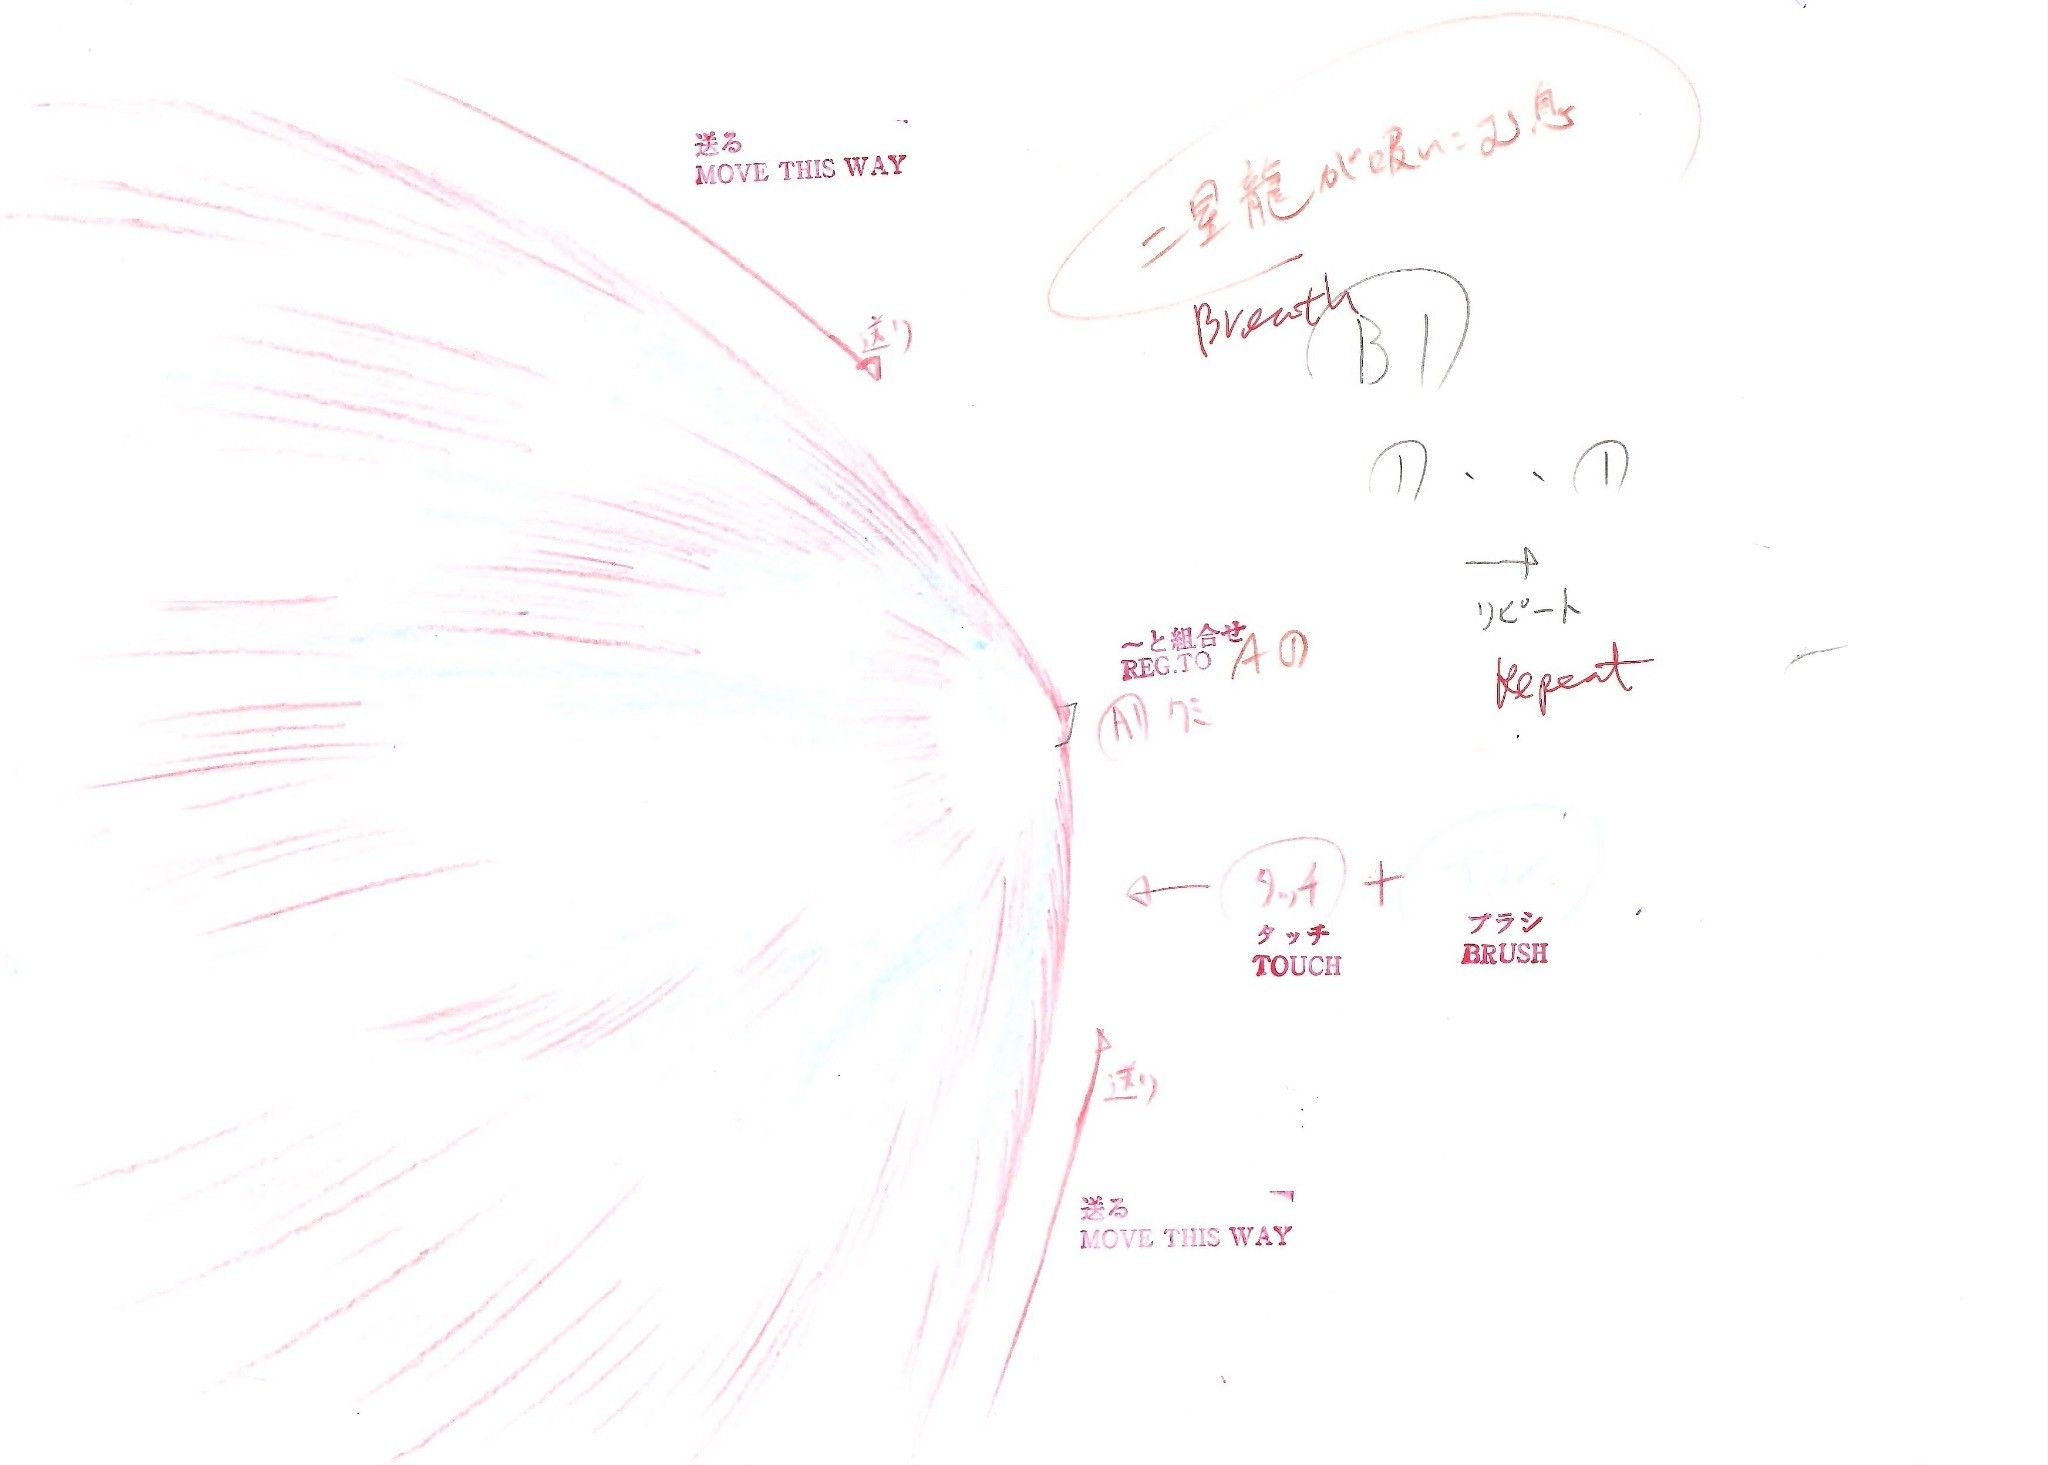 送る
MOVE THIS WAY
送り
二星龍が吸いこむ息
Breath
B1
① ・ ・ ①
リピート
repeat
〜と組合せ
REG.TO A ①
A1 クミ
タッチ +
タッチ
TOUCH
ブラシ
BRUSH
送り
送る
MOVE THIS WAY